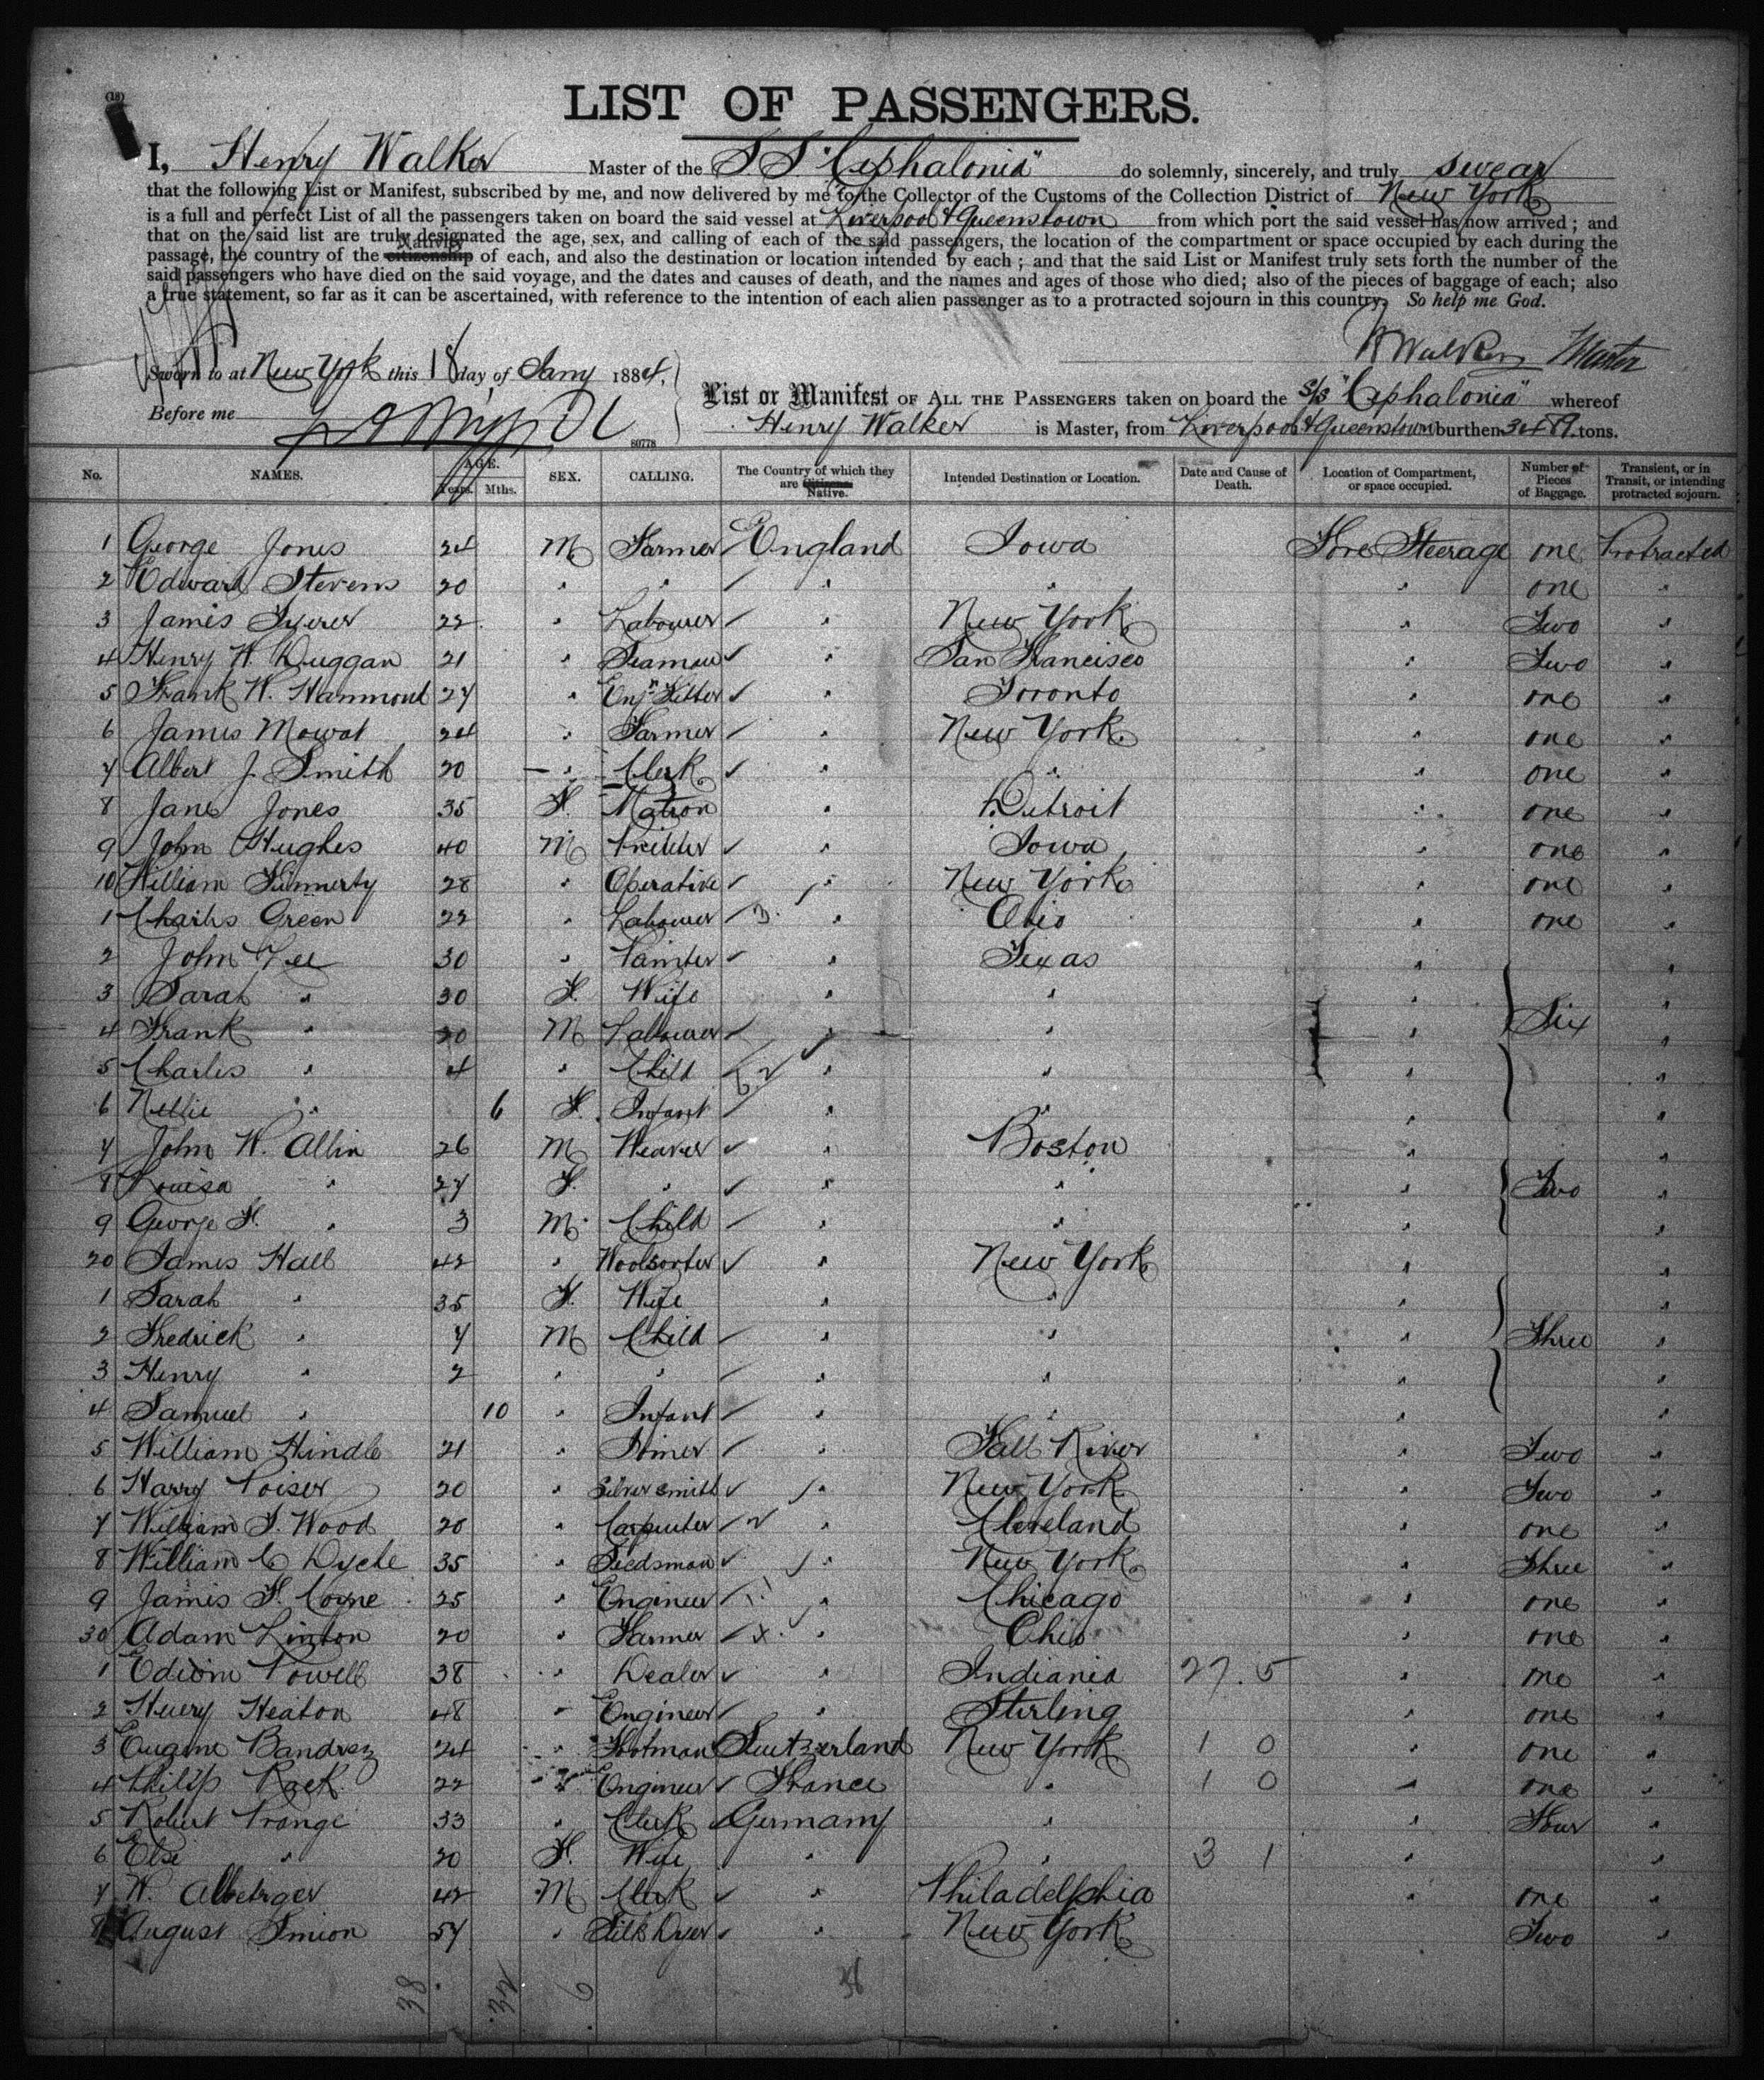 (18)
LIST OF PASSENGERS.
I, Henry Walker Master of the S S "Cephalonia" do solemnly, sincerely, and truly swear
that the following List or Manifest, subscribed by me, and now delivered by me to the Collector of the Customs of the Collection District of New York
is a full and perfect List of all the passengers taken on board the said vessel at Liverpool & Queenstown from which port the said vessel has now arrived; and
that on the said list are truly designated the age, sex, and calling of each of the said passengers, the location of the compartment or space occupied by each during the
Nativity
passage, the country of the citizenship of each, and also the destination or location intended by each; and that the said List or Manifest truly sets forth the number of the
said passengers who have died on the said voyage, and the dates and causes of death, and the names and ages of those who died; also of the pieces of baggage of each; also
a true statement, so far as it can be ascertained, with reference to the intention of each alien passenger as to a protracted sojourn in this country. So help me God.
H Walker Master
Sworn to at New York this 18 day of Jany 1884,
Before me
80778
List or Manifest OF ALL THE PASSENGERS taken on board the S/S "Cephalonia" whereof
Henry Walker is Master, from Liverpool & Queenstown burthen tons.
No. NAMES. AGE. Years. Mths. SEX. CALLING. The Country of which they are Citizens Native. Intended Destination or Location. Date and Cause of Death. Location of Compartment, or space occupied. Number of Pieces of Baggage. Transient, or in Transit, or intending protracted sojourn.
1 George Jones 24 M Farmer England Iowa Fore Steerage one Protracted
2 Edward Stevens 20 " " " " " one "
3 James 22 " Labourer " New York " Two "
4 Henry W. Duggan 21 " Seaman " San Francisco " Two "
5 Frank W. Hammond 27 " Eng Fitter " Toronto " one "
6 James Mowat 24 " Farmer " New York " one "
7 Albert J. Smith 20 " Clerk " " " one "
8 Jane Jones 35 F. Matron " Detroit " one "
9 John Hughes 40 M " Iowa " one "
10 William Finnerty 28 " Operative " New York " one "
1 Charles Green 22 " Labourer " Ohio " one "
2 John 30 " Painter " Texas " "
3 Sarah " 30 F. Wife " " " "
4 Frank " 20 M Labourer " " " Six "
5 Charles " 4 " Child " " " "
6 Nellie " 6 F. Infant " " " "
7 John W. Allin 26 M Weaver " Boston " "
8 Louisa " 27 F. " " " " Two "
9 George F. " 3 M Child " " " "
20 James Hall 42 " Woolsorter " New York " "
1 Sarah " 35 F. Wife " " " "
2 Fredrick " 7 M Child " " " Three "
3 Henry " 2 " " " " " "
4 Samuel " 10 " Infant " " " "
5 William Hindle 21 " Joiner " Fall River " Two "
6 Harry Poiser 20 " Silversmith " New York " Two "
7 William J. Wood 28 " Carpenter " Cleveland " one "
8 William C Dyche 35 " Seedsman " New York " Three "
9 James F. Coyne 25 " Engineer " Chicago " one "
30 Adam Linton 20 " Farmer " Ohio " one "
1 Edwin Powell 38 " Dealer " Indiania 27. 5 " one "
2 Henry Heaton 48 " Engineer " Stirling " one "
3 Eugene 24 " Footman Switzerland New York 1 0 " one "
4 Philip Rack 22 " Engineer France " 1 0 " one "
5 Robert Prange 33 " Clerk Germany " " Four "
6 Else " 20 F. Wife " " 3 1 " "
7 W. 42 M Clerk " Philadelphia " one "
8 August Simion 57 " Silk Dyer " New York Two "
38 32 6 38